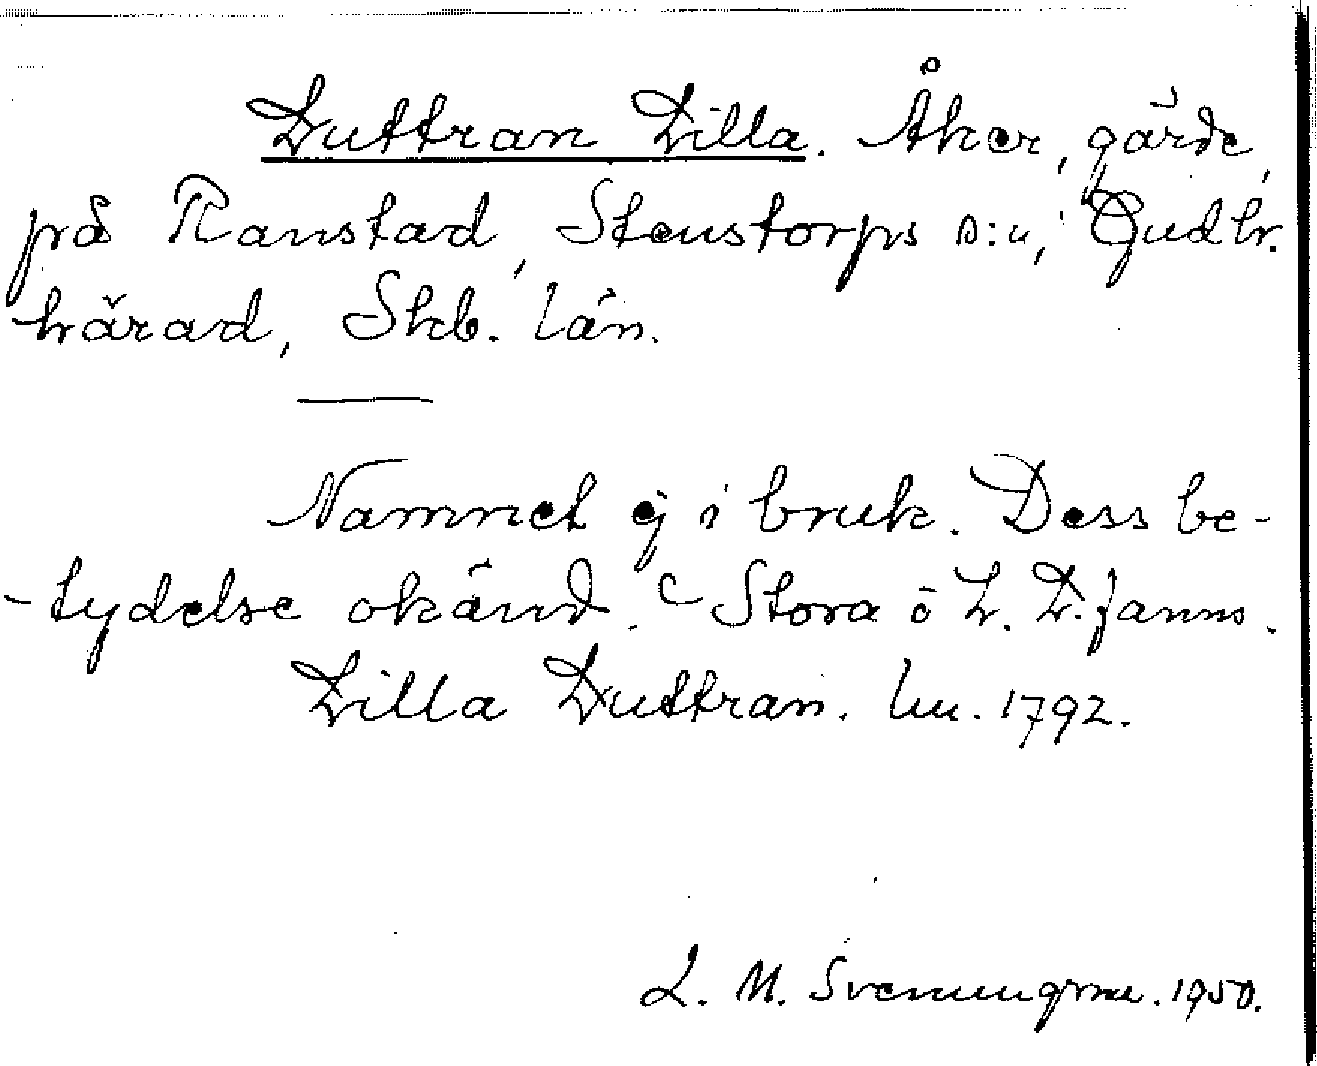 Luttran Lilla. Åker, gärde,
på Ranstad, Stenstorps s:n, Gudh.
härad, Skb. län.
Namnet ej i bruk. Dess be-
-tydelse okänd. Stora o L. L. fanns.
Lilla Luttran. lm. 1792.
L. M. Svenungsson. 1950.